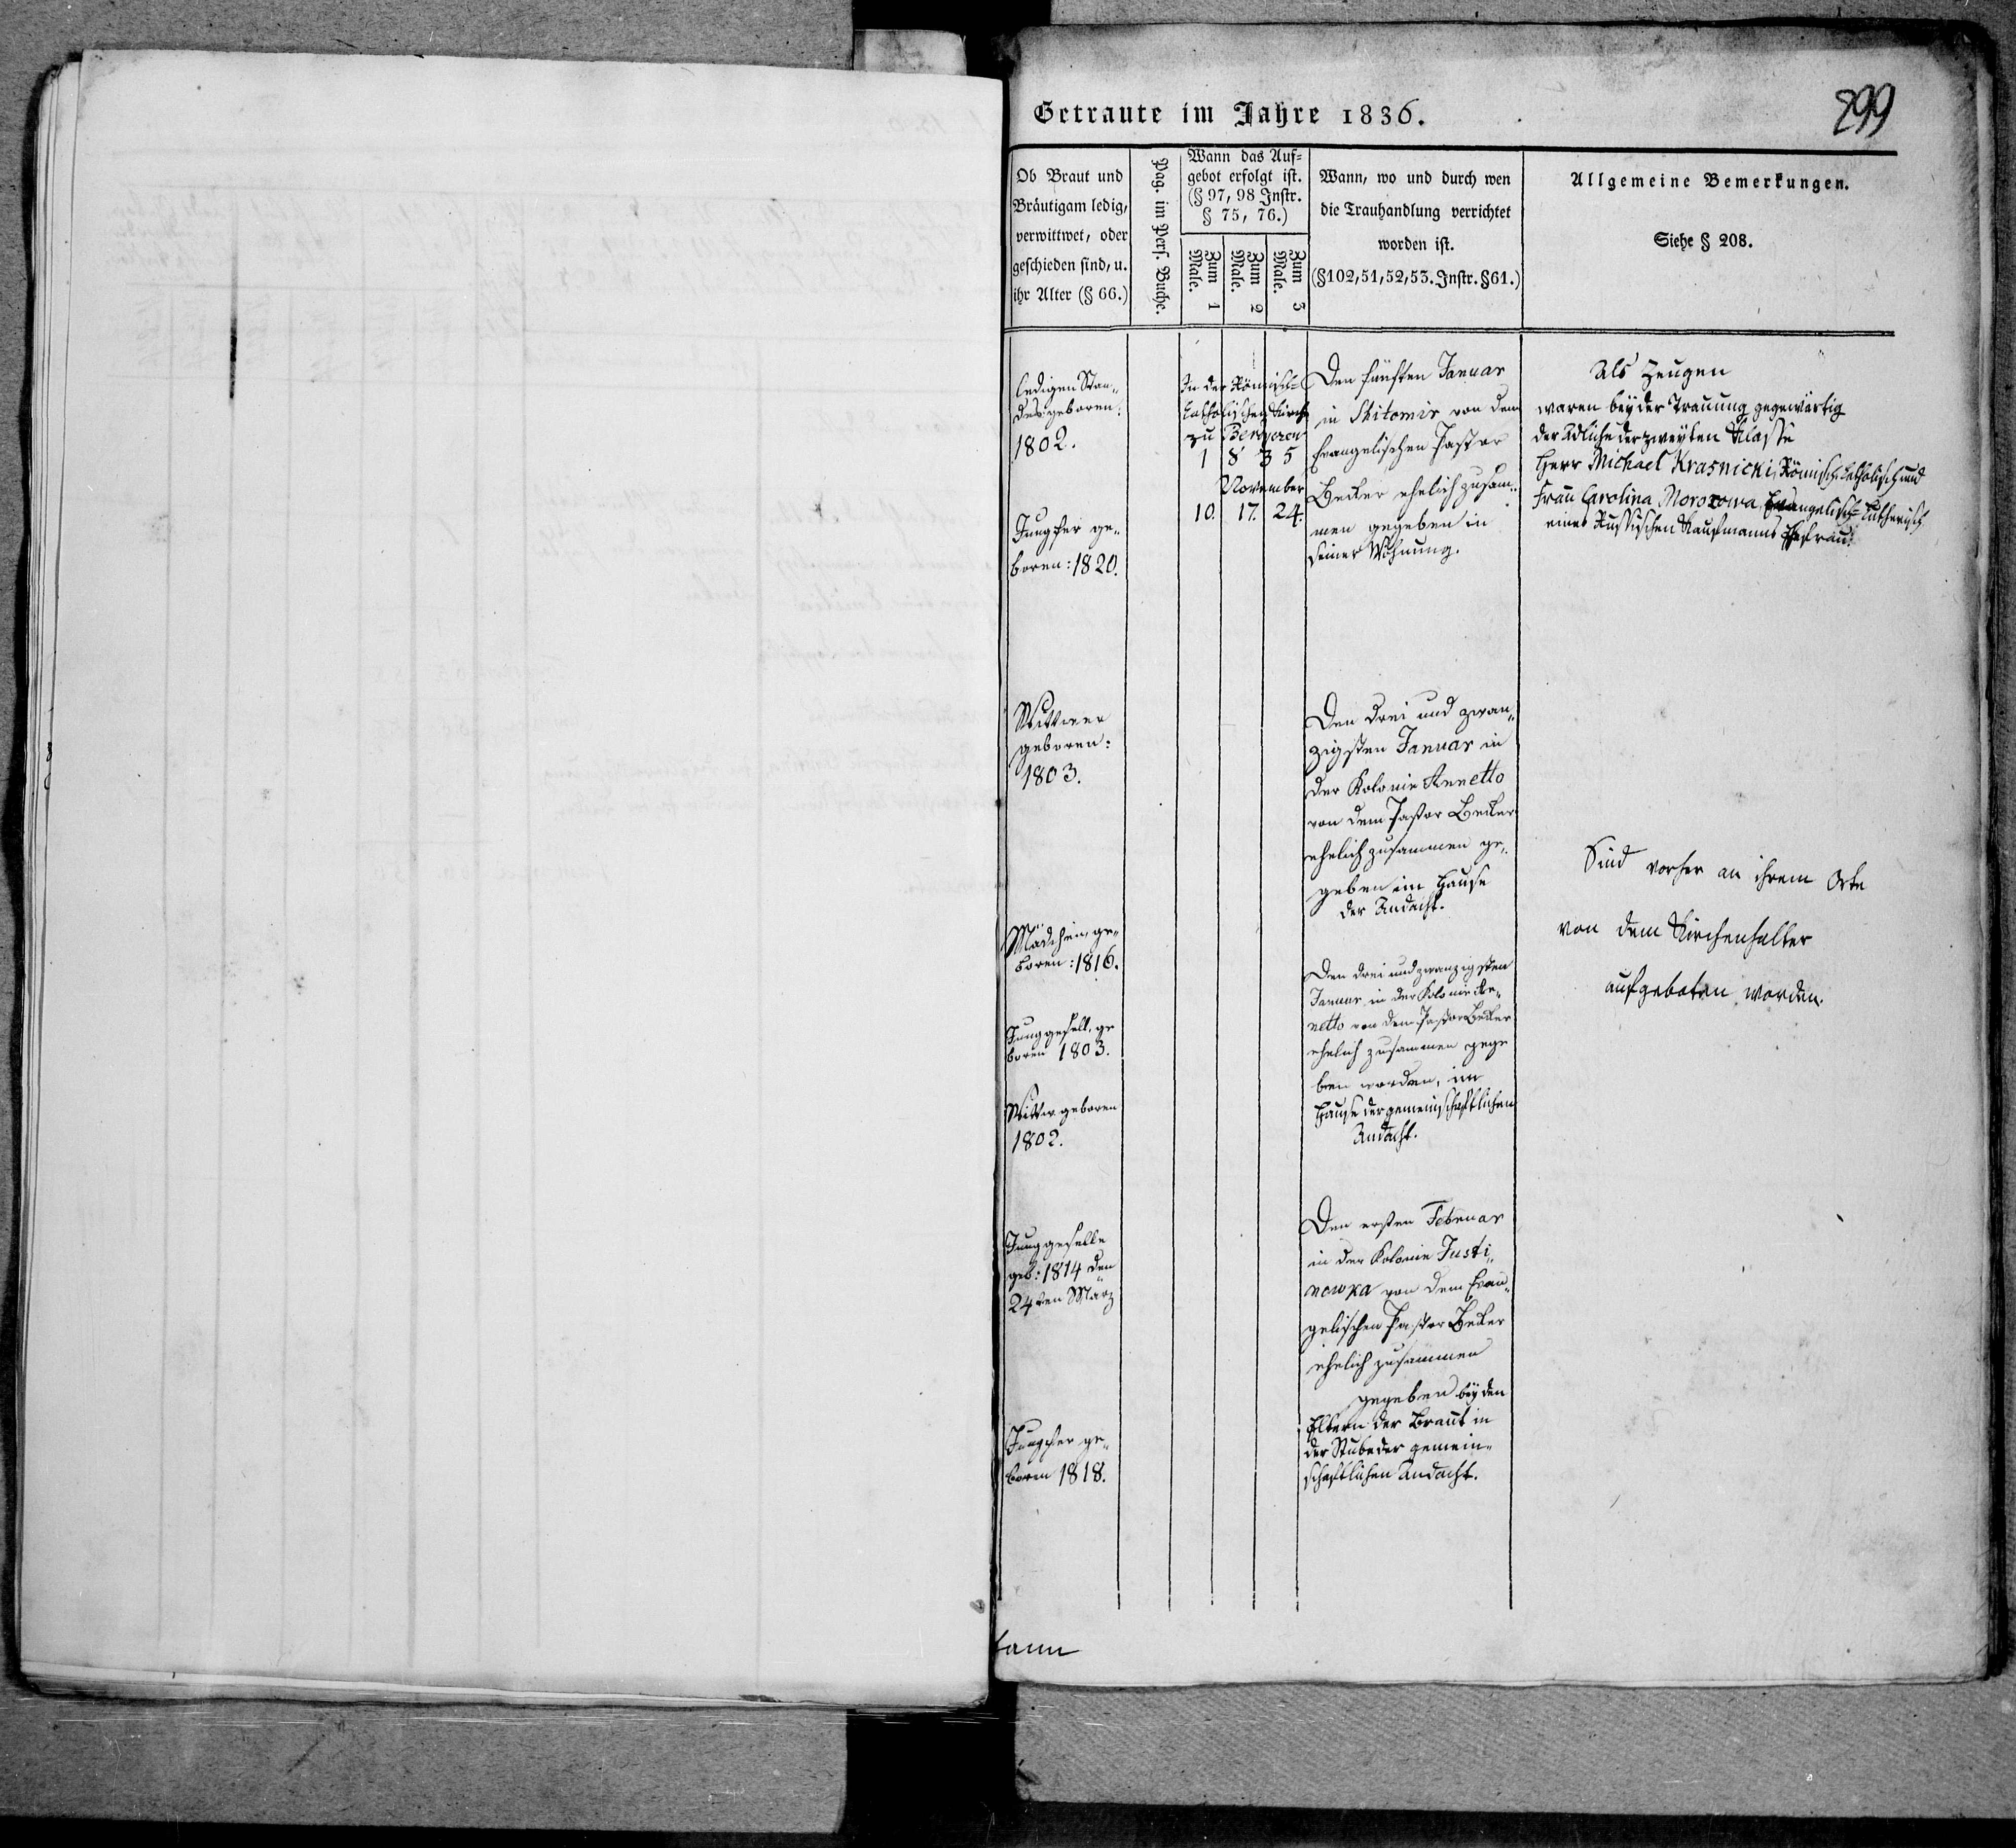 Getraute im Jahre 1836.
299
Ob Braut und
Bräutigam ledig,
verwittwet, oder
geschieden sind, u.
ihr Alter (§ 66.)
Pag. im Pers. Buche.
Wann das Auf-
gebot erfolgt ist.
(§ 97, 98 Instr.
§ 75, 76.)
Zum 1
Male.
Zum 2
Male.
Zum 3
Male.
Wann, wo und durch wen
die Trauhandlung verrichtet
worden ist.
(§102, 51, 52, 53. Instr. §61.)
Allgemeine Bemerkungen.
Siehe § 208.
ledigen Stan-
des geboren:
1802.
Jungfer ge-
boren: 1820.
In der Römisch-
Catholischen Kirche
zu
1 8 3 5
November
10. 17. 24.
Den fünften Januar
in Shitomir von dem
Evangelischen Pastor
Becker ehelich zusam-
men gegeben in
seiner Wohnung.
Als Zeugen
waren bey der Trauung gegenwärtig
der Adliche der zweyten Klasse
Herr Michael Krasnicki, Römisch-Catholisch und
Frau Carolina Morozowa, Evangelisch-Lutherisch
eines Russischen Kaufmanns Ehefrau.
Wittwer
geboren:
1803.
Mädchen, ge-
boren: 1816.
Den drei und zwan-
zigsten Januar in
der Kolonie Annetto
von dem Pastor Becker
ehelich zusammen ge-
geben im Hause
der Andacht.
Sind vorher an ihrem Orte
von dem Kirchenhalter
aufgeboten worden.
Junggesell, ge
boren 1803.
Wittwe geboren
1802.
Den drei und zwanzigsten
Januar in der Kolonie An-
netto von dem Pastor Becker
ehelich zusammen gege
ben worden, im
Hause der gemeinschaftlichen
Andacht.
Junggeselle
geb: 1814 den
24ten März
Jungfer ge-
boren 1818.
Den ersten Februar
in der Kolonie Justi-
nowka von dem Evan-
gelischen Pastor Becker
ehelich zusammen
gegeben bey den
Eltern der Braut in
der Stube der gemein-
schaftlichen Andacht.